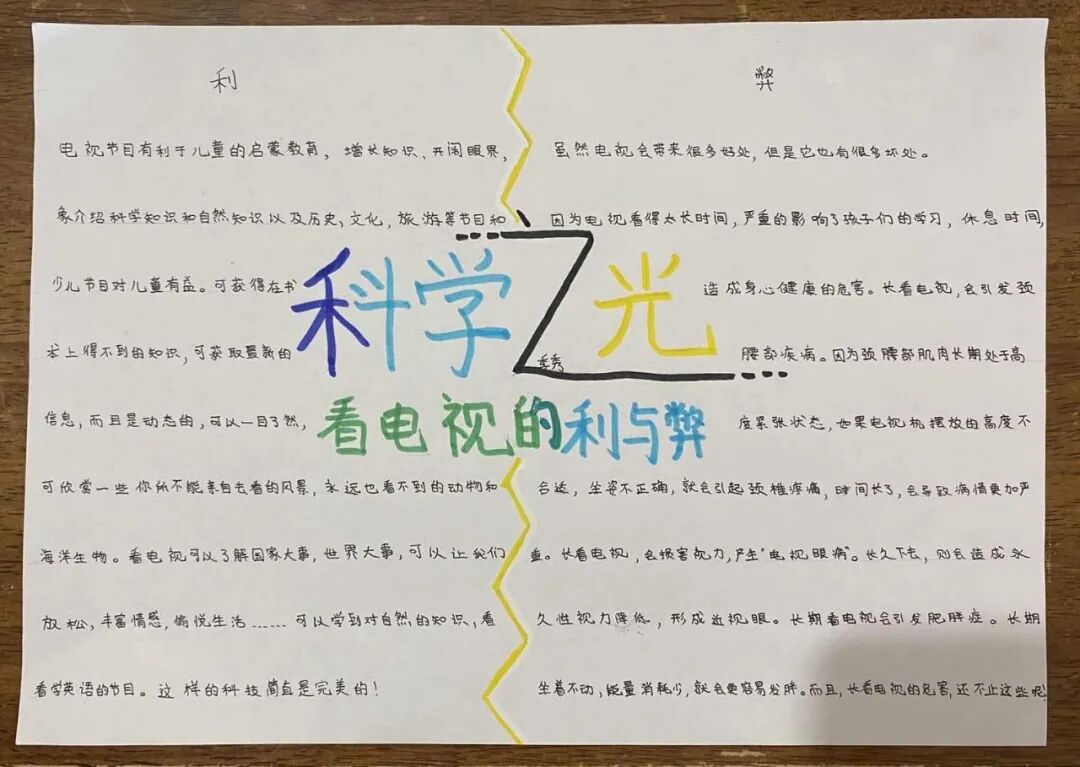 科学之光
季秀
看电视的利与弊
利
电视节目有利于儿童的启蒙教育，增长知识、开阔眼界，
象介绍科学知识和自然知识以及历史、文化，旅游等节目和
少儿节目对儿童有益。可获得在书
本上得不到的知识，可获取最新的
信息，而且是动态的，可以一目了然，
可欣赏一些你所不能亲自去看的风景，永远也看不到的动物和
海洋生物。看电视可以了解国家大事，世界大事，可以让我们
放松，丰富情感，愉悦生活……可以学到对自然的知识，看
看学英语的节目。这样的科技简直是完美的！
弊
虽然电视会带来很多好处，但是它也有很多坏处。
因为电视看得太长时间，严重的影响了孩子们的学习，休息时间，
造成身心健康的危害。长看电视，会引发颈
腰部疾病。因为颈腰部肌肉长期处于高
度紧张状态，如果电视机摆放的高度不
合适，坐姿不正确，就会引起颈椎疼痛，时间长了，会导致病情更加严
重。长看电视，会损害视力，产生“电视眼病”。长久下去，则会造成永
久性视力降低，形成近视眼。长期看电视会引发肥胖症。长期
坐着不动，能量消耗少，就会更容易发胖。而且，长看电视的危害，还不止这些呢！